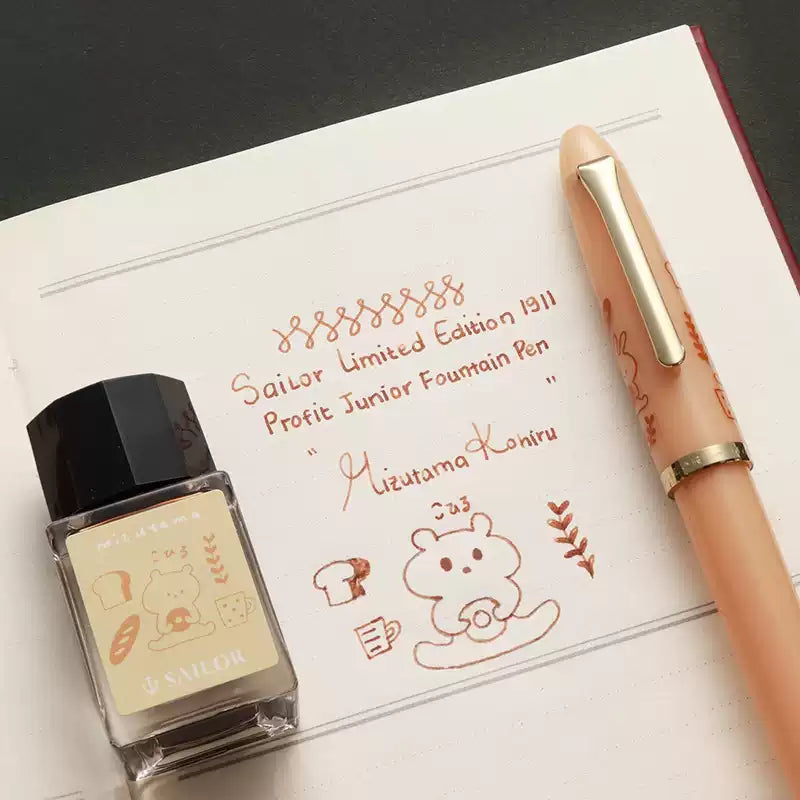 Sailor Limited Edition 1911
Profit Junior Fountain Pen
"Mizutama Kohiru"
こひる
mizutama
こひる
SAILOR